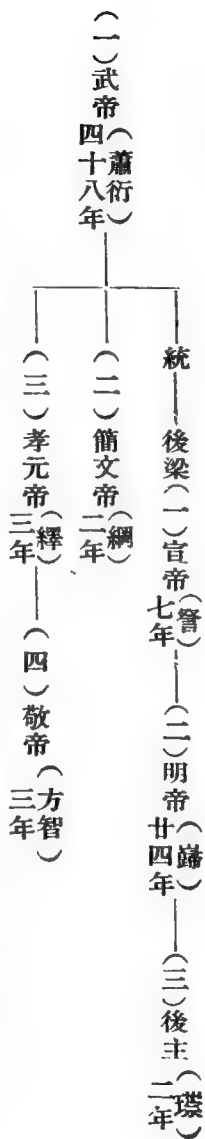 (一)武帝(蕭衍)四十八年
統 後梁(一)宣帝(詧)七年 (二)明帝(巋)廿四年 (三)後主(琮)二年
(二)簡文帝(綱)二年
(三)孝元帝(繹)三年 (四)敬帝(方智)三年